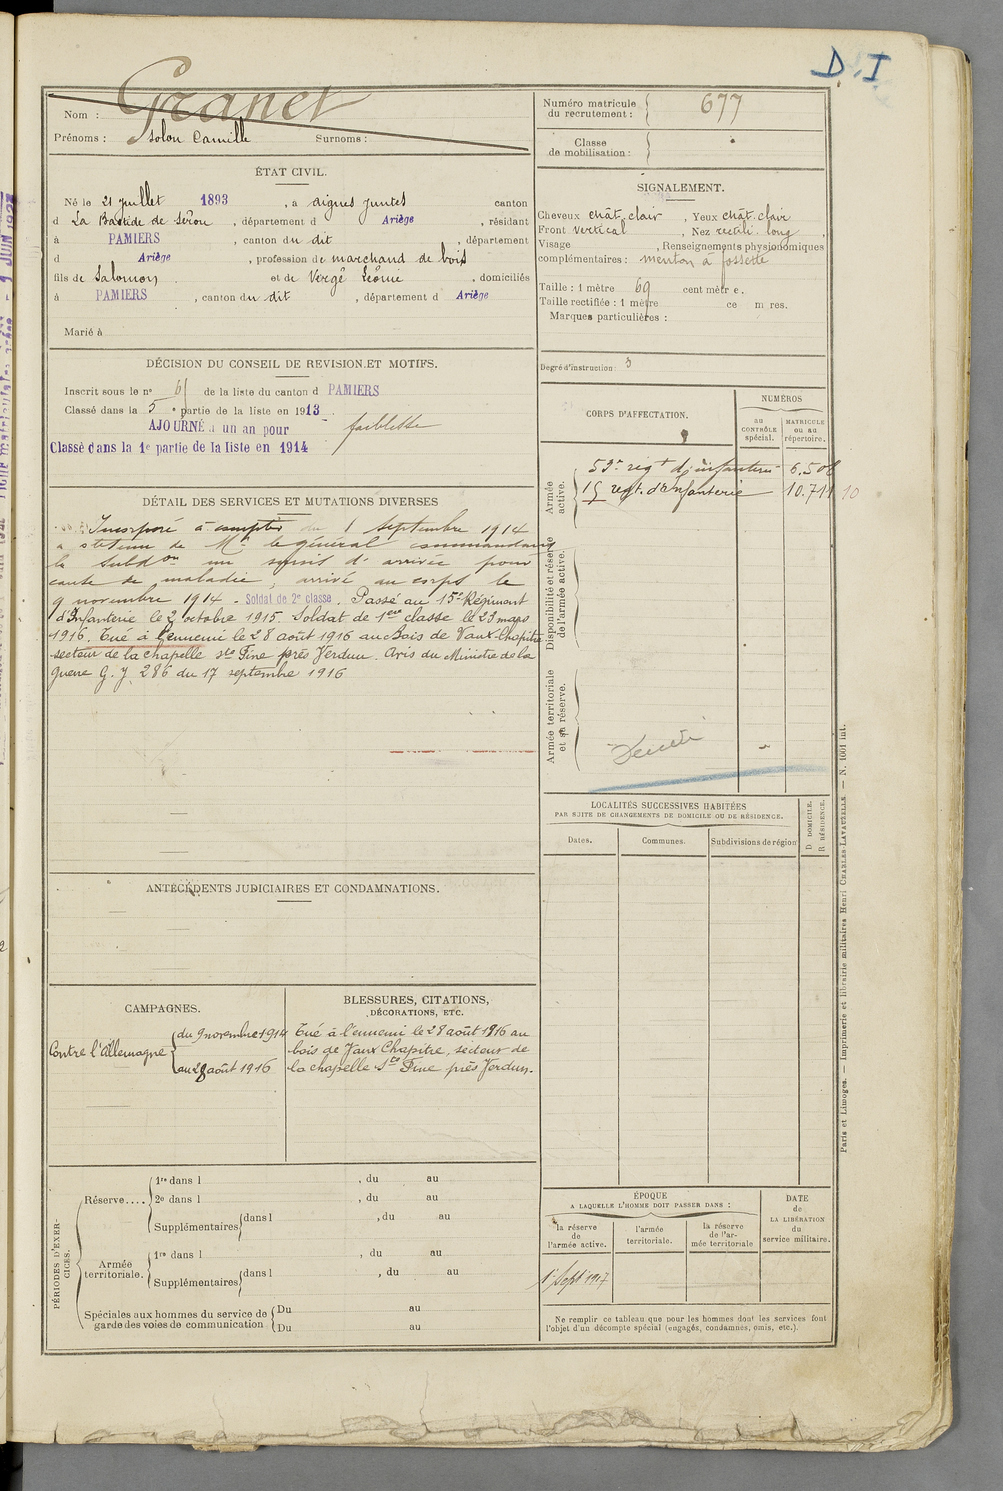 D.I
Nom : Granet
Prénoms : Solon Camille Surnoms :
Numéro matricule du recrutement : 677
Classe de mobilisation :
ÉTAT CIVIL.
Né le 21 juillet 1893, à Aigues Juntes canton
d La Bastide de Sérou, département d Ariège, résidant
à PAMIERS, canton du dit, département
d Ariège, profession de marchand de bois
fils de Salomon et de Vergé Léonie, domiciliés
à PAMIERS, canton du dit, département d Ariège
Marié à
SIGNALEMENT.
Cheveux chât. clair, Yeux chât. clair
Front vertical, Nez rectili. long,
Visage , Renseignements physionomiques
complémentaires : menton à fossette
Taille : 1 mètre 69 centimètre.
Taille rectifiée : 1 mètre ce m res.
Marques particulières :
Degré d'instruction : 3
DÉCISION DU CONSEIL DE REVISION ET MOTIFS.
Inscrit sous le n° de la liste du canton d PAMIERS
Classé dans la 5e partie de la liste en 1913.
AJOURNÉ à un an pour faiblesse
Classé dans la 1e partie de la liste en 1914
CORPS D'AFFECTATION.
NUMÉROS
au CONTRÔLE spécial.
MATRICULE ou au répertoire.
Armée active.
59e regt d'infanterie 6.508
15 regt. d'Infanterie 10.711 10
Disponibilité et réserve de l'armée active.
Armée territoriale et sa réserve.
DÉTAIL DES SERVICES ET MUTATIONS DIVERSES
Incorporé à compter du 1 septembre 1914
a obtenu de Mr le général commandant
la subdon un sursis d'arrivée pour
cause de maladie, arrivé au corps le
9 novembre 1914. Soldat de 2e classe. Passé au 15e Régiment
d'Infanterie le 2 octobre 1915. Soldat de 1ère classe le 23 mars
1916. Tué à l'ennemi le 28 août 1916 au Bois de Vaux-Chapitre
secteur de la chapelle Ste Fine près Verdun. Avis du Ministre de la
guerre G. J. 286 du 17 septembre 1916
LOCALITÉS SUCCESSIVES HABITÉES
PAR SUITE DE CHANGEMENTS DE DOMICILE OU DE RÉSIDENCE.
Dates. Communes. Subdivisions de région
D DOMICILE. R RÉSIDENCE.
ANTÉCÉDENTS JUDICIAIRES ET CONDAMNATIONS.
CAMPAGNES.
Contre l'Allemagne
du 9 novembre 1914
au 28 août 1916
BLESSURES, CITATIONS,
DÉCORATIONS, ETC.
Tué à l'ennemi le 28 août 1916 au
bois de Vaux Chapitre, secteur de
la chapelle Ste Fine près Verdun.
PÉRIODES D'EXERCICES.
Réserve....
1re dans l , du au
2e dans l , du au
Supplémentaires dans l , du au
Armée territoriale.
1re dans l , du au
Supplémentaires dans l , du au
Spéciales aux hommes du service de garde des voies de communication
Du au
Du au
ÉPOQUE
A LAQUELLE L'HOMME DOIT PASSER DANS :
la réserve de l'armée active.
l'armée territoriale.
la réserve de l'armée territoriale
DATE de LA LIBÉRATION du service militaire.
1er Sept 1917
Ne remplir ce tableau que pour les hommes dont les services font
l'objet d'un décompte spécial (engagés, condamnés, omis, etc.).
Paris et Limoges. — Imprimerie et librairie militaires Henri CHARLES-LAVAUZELLE. — N. 1001 int.